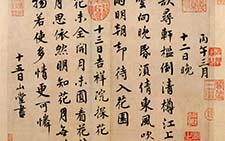 丙午三月
十二日晚
欲尋軒檻倒清樽江上
雲向晚隈須倩東風吹
雨明朝却待入花園
十三日吉祥院探花
花未全開月未圓看花
月思依然明知花月無
物若使多情更可憐
十五日山堂書